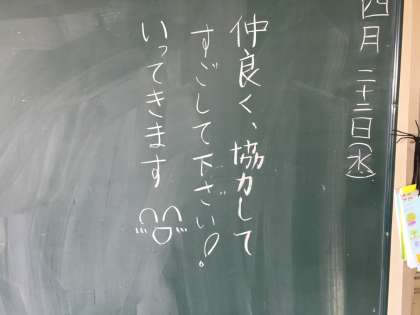 四月二十二日(水)
仲良く、協力して
すごして下さい!
いってきます